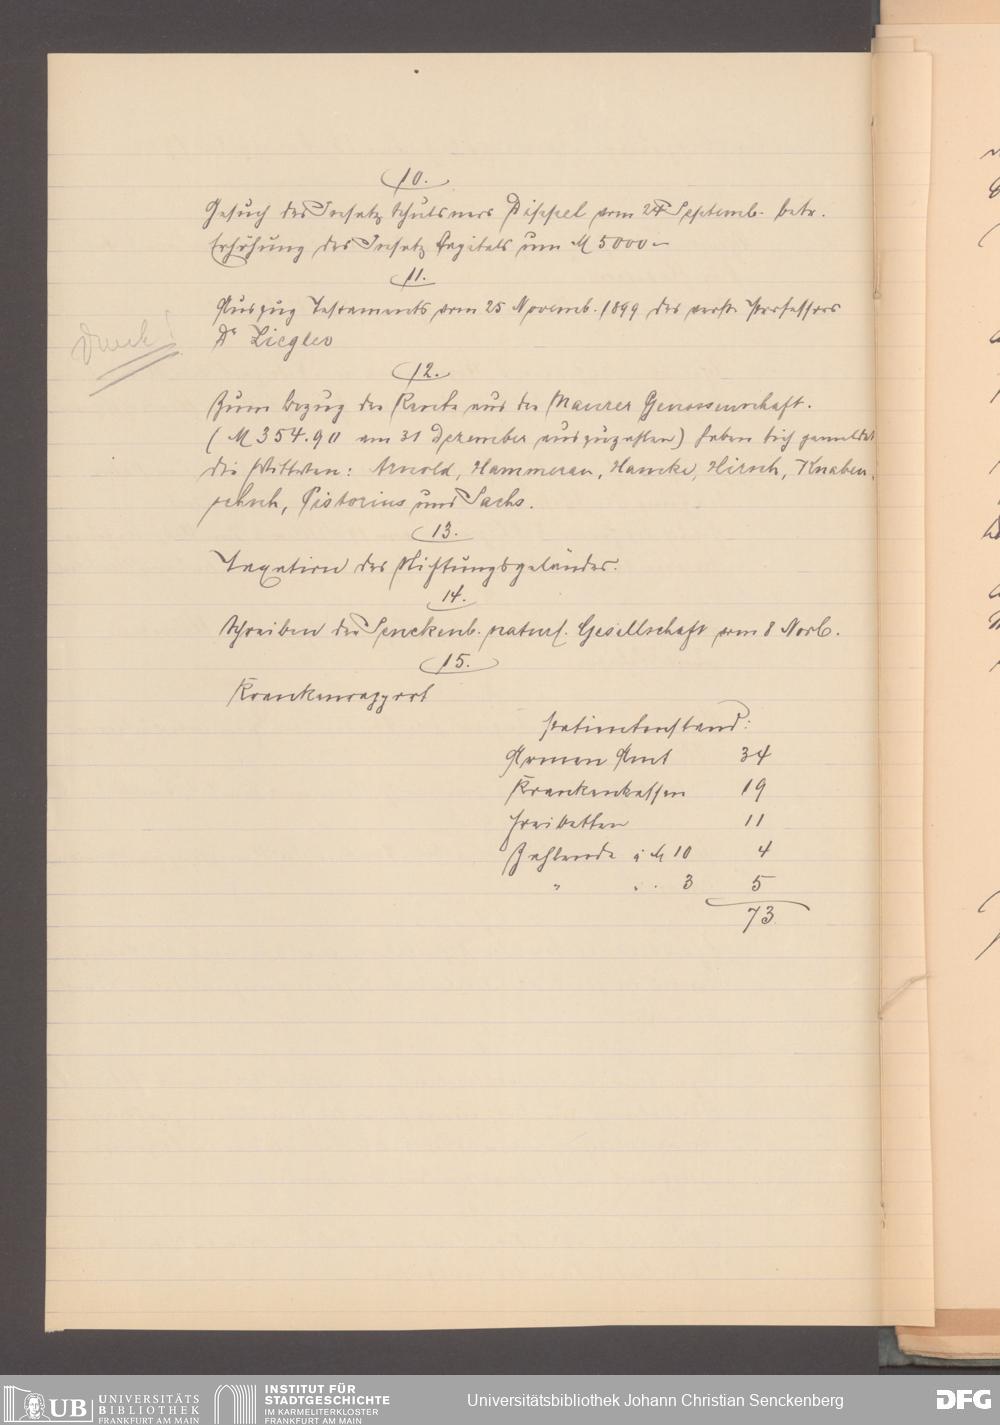 10.
Gesuch des Insatz Schuldners Dippel vom 24 Septemb. betr.
Erhöhung des Insatz Capitals um M 5000 –
11.
Auszug Testaments vom 25 Novemb. 1899 des verst. Professors
Dr Ziegler
12.
Zum Bezug der Rente aus der Maurer Genossenschaft.
( M 354.90 am 31 Dezember auszuzahlen) haben sich gemeldet
die Wittwen: Arnold, Hammeran, Hancke, Hirsch, Knaben,
schuh, Pistorius und Sachs.
13.
Taxation des Stiftungsgeländes.
14.
Schreiben der Senckenb. naturf. Gesellschaft vom 8 Novb.
15.
Krankenrapport
Patientenstand:
Armen Amt 34
Krankenkassen 19
Freibetten 11
Zahlende à M 10 4
" " . 3 5
73
UB UNIVERSITÄTS
BIBLIOTHEK
FRANKFURT AM MAIN
INSTITUT FÜR
STADTGESCHICHTE
IM KARMELITERKLOSTER
FRANKFURT AM MAIN
Universitätsbibliothek Johann Christian Senckenberg
DFG